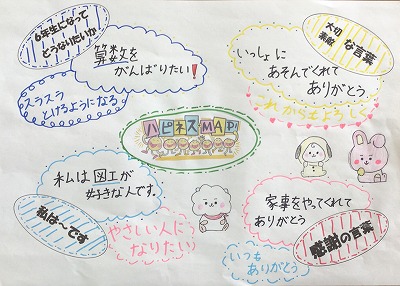 6年生になって
どうなりたいか
算数を
がんばりたい!
スラスラ
とけるようになる
大切
素敵
な言葉
いっしょに
あそんでくれて
ありがとう
これからもよろしく
ハピネスMAP
私は図工が
好きな人です。
私は～です
やさしい人に
なりたい
家事をやってくれて
ありがとう
感謝の言葉
いつも
ありがとう